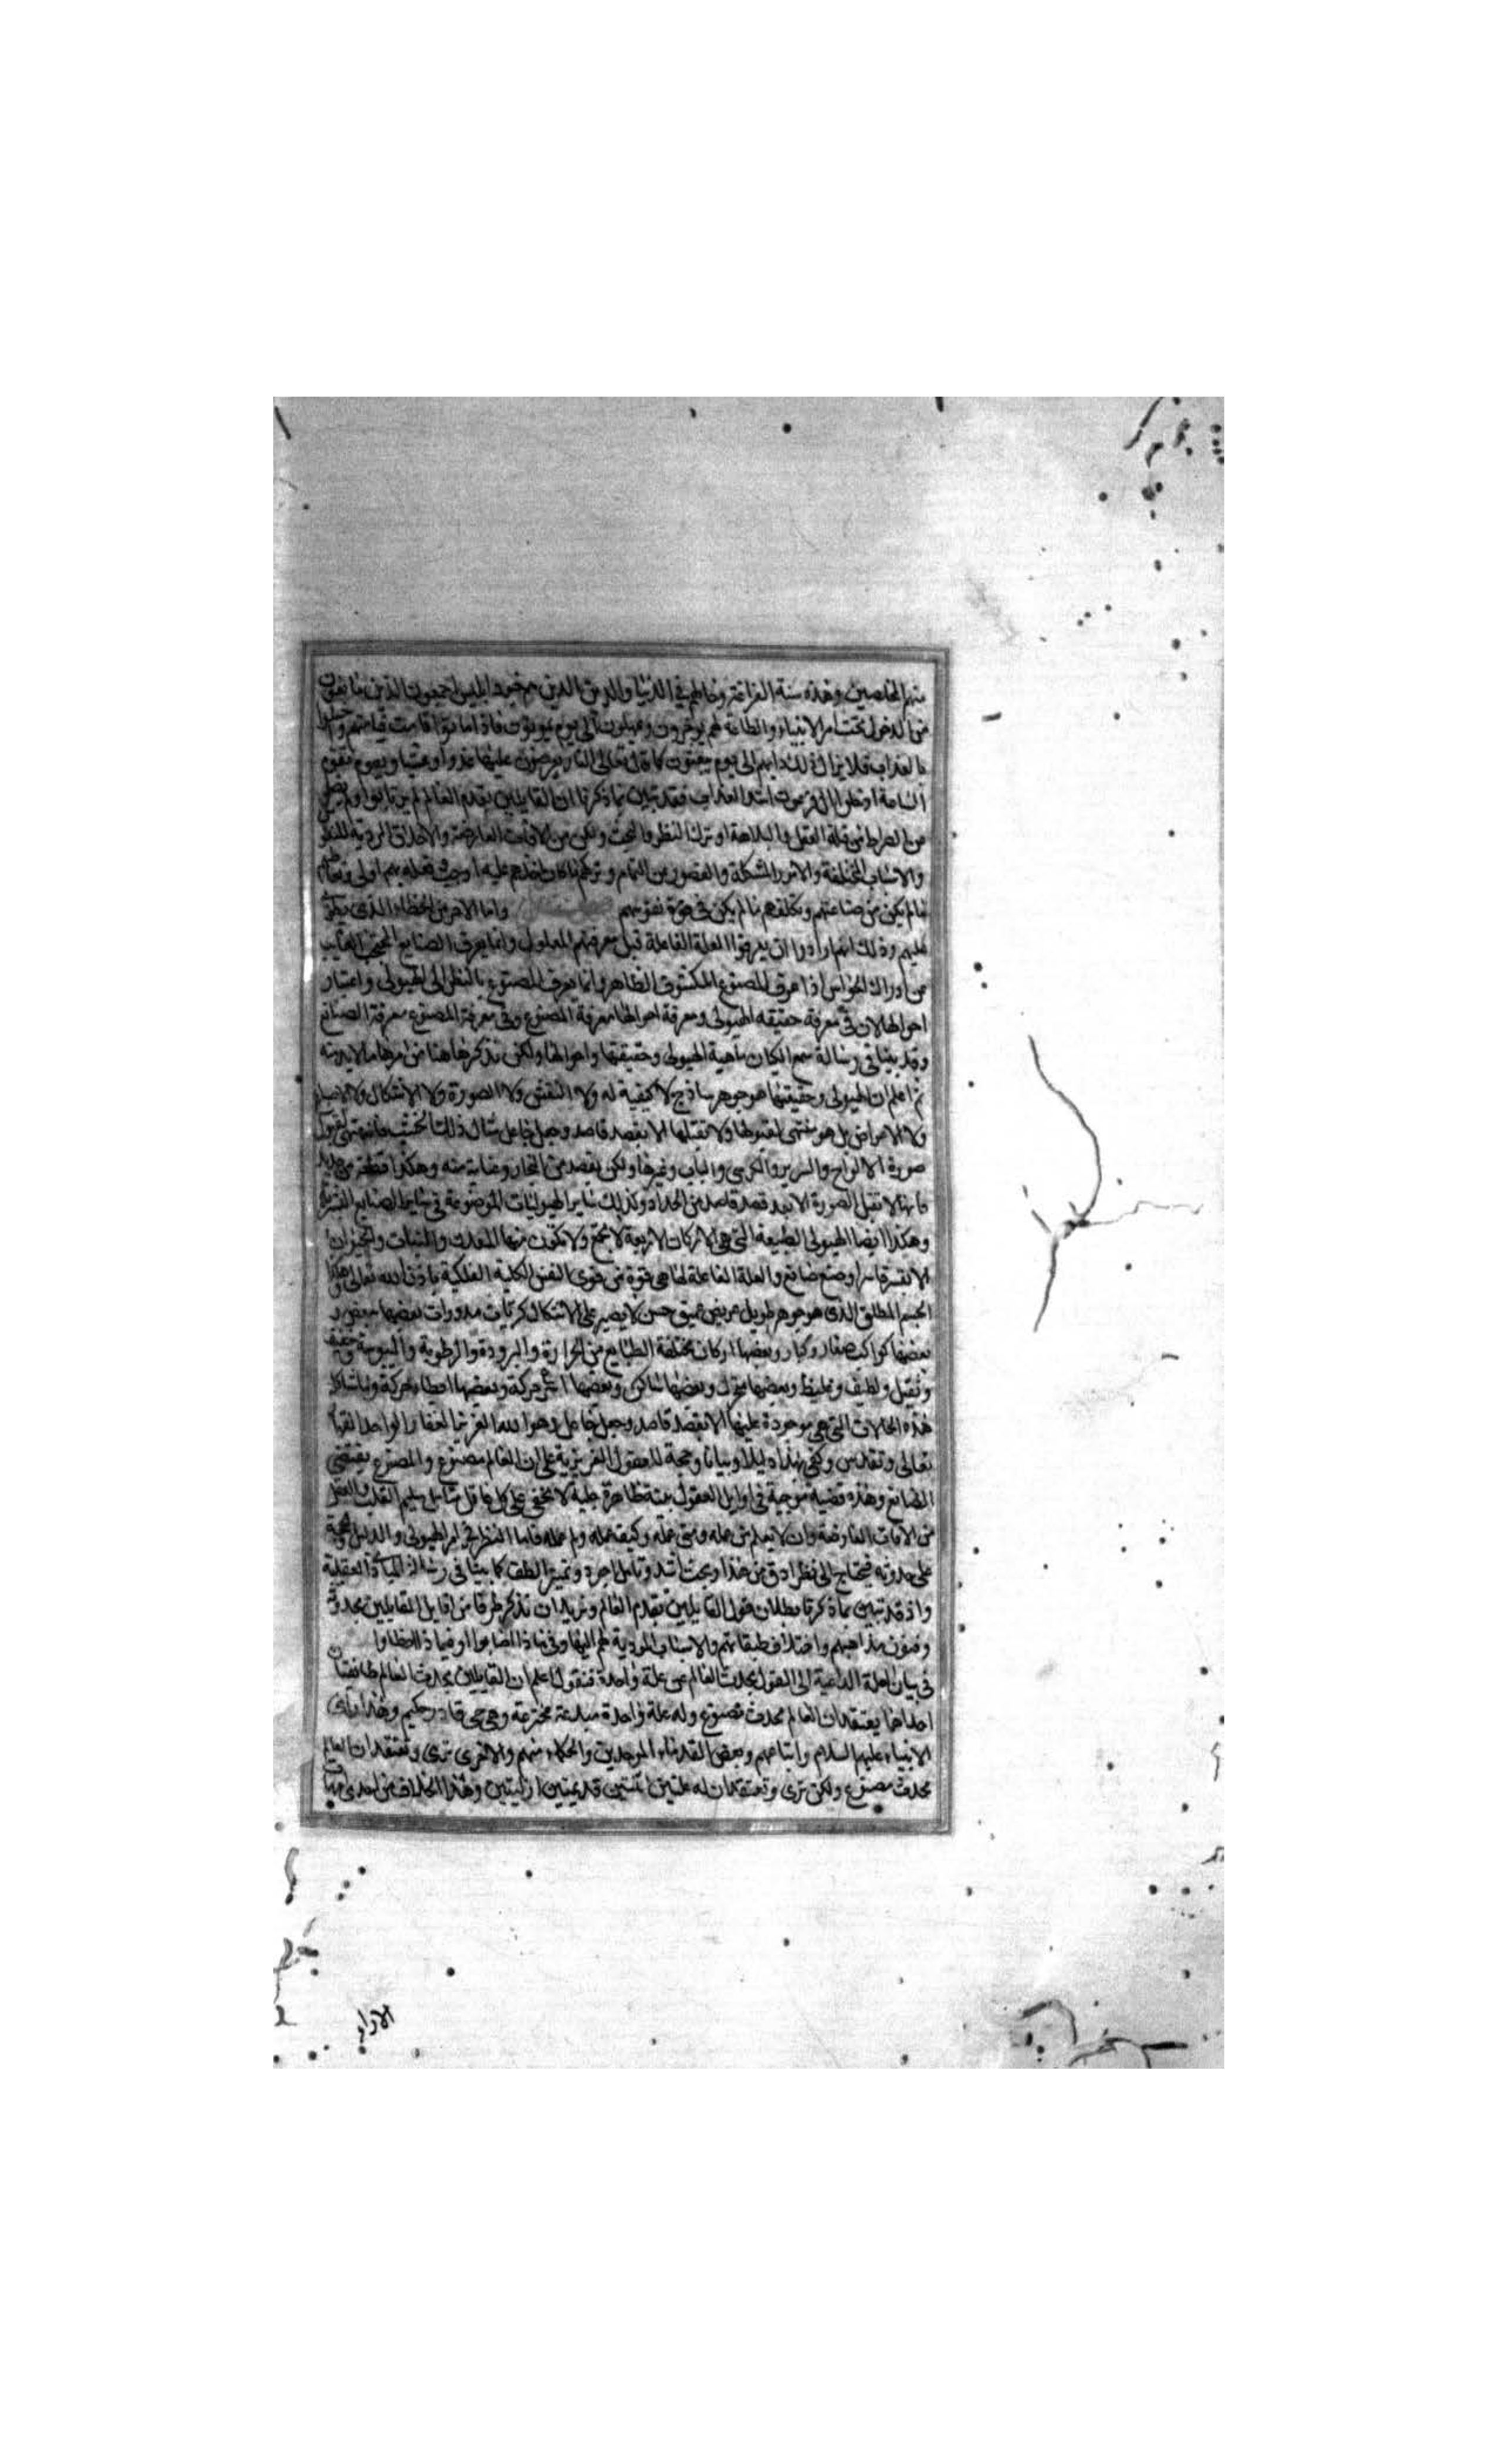 منهم المخلصين وهذه سنة الفراعنة وحالهم في الدنيا والدين الذين هم جنود ابليس اجمعون الذين
من الدخول تحت امر الانبياء والطاعة لهم يوخرون ويمهلون الى يوم يموتون فاذا ماتوا قامت قيامتهم
بالعذاب فلا يزال ذلك دابهم الى يوم يبعثون كما قال تعالى النار يعرضون عليها غدوا وعشيا ويوم تقوم
الساعة ادخلوا ال فرعون اشد العذاب فقد تبين بما ذكرنا ان القايلين بقدم العالم لم
من قلة العقل والبلاهة او ترك النظر والبحث ولكن من الافات العارضة والاخلاق الردية
والاسباب المختلفة والامور المشكلة والقصور عن التمام وتركهم ما كان
ما لم يكن من صناعتهم وتكلفهم ما لم يكن في قوة نفوسهم واما الامر من الخطاء الذي
عليهم وذلك انهم ارادوا ان يعرفوا العلة الفاعلة قبل معرفتهم المعلول وانما يعرف الصانع المحتجب الغايب
عن ادراك الحواس اذا عرف المصنوع المكشوف الظاهر وانما يعرف المصنوع بالنظر الى الهيولى واعتبار
احوالها لان في معرفة حقيقة الهيولى ومعرفة احوالها معرفة المصنوع وفي معرفة المصنوع معرفة الصانع
وقد بينا في رسالة سمع الكيان ماهية الهيولى وحقيقتها واحوالها ولكن نذكر هاهنا من امرها ما لا بد منه
ثم اعلم ان الهيولى وحقيقتها هو جوهر ساذج لا كيفية له ولا النقش ولا الصورة ولا الاشكال ولا
ولا الاعراض بل هو متهئ لقبولها ولا تقبلها الا بقصد قاصد وجعل جاعل مثال ذلك الخشب فانه متهئ لقبول
صورة الالواح والسرير والكرسي والباب وغيرها ولكن بقصد من النجار وعناية منه وهكذا قطعة من حديد
فانها لا تقبل الصورة الا بعد قصد قاصد من الحداد وكذلك ساير الهيوليات الموضوعة في ساير الصنايع البشرية
وهكذا ايضا الهيولى الطبيعة التي هي الاركان الاربعة لا تجتمع ولا تكون منها المعادن والنبات والحيوان
الا بقسر قاسر او صنع صانع والعلة الفاعلة لها هي قوة من قوى النفس الكلية الفلكية باذن الله تعالى
الجسم المطلق الذي هو جوهر طويل عريض عميق حسن لا يصير على الاشكال كريات مدورات بعضها
بعضها كواكب صغار وكبار وبعضها اركان مختلفة الطبايع من الحرارة والبرودة والرطوبة واليبوسة وخفيف
وثقيل ولطيف وغليظ وبعضها متحرك وبعضها ساكن وبعضها اسرع حركة وبعضها ابطاء حركة وما شاكل
هذه الحالات التي هي موجودة عليها الا بقصد قاصد وجعل جاعل وهو الله العزيز الغفار الواحد القهار
تعالى وتقدس وكفى بهذا دليلا وبيانا وحجة للعقول الغريزية على ان العالم مصنوع والمصنوع يقتضي
الصانع وهذه قضية موجبة في اوايل العقول بينة ظاهرة جلية لا تخفى على كل عاقل متامل سليم القلب والعقل
من الافات العارضة وان لا يعلم من عمله ومتى عمله وكيف عمله ولم عمله فاما النظر في امر الهيولى والدليل والحجة
على حدوثه فيحتاج الى نظر ادق من هذا وبحث اشد وتامل اجود وتمييز الطف كما بينا في رسالة المبادئ العقلية
واذ قد تبين بما ذكرنا بطلان قول القايلين بقدم العالم ونريد ان نذكر طرفا من اقاويل القايلين بحدوثه
وفنون مذاهبهم واختلاف طبقاتهم والاسباب المودية لهم اليها وفي ماذا اصابوا او فيما ذا اخطاوا
في بيان العلة الداعية الى القول بحدث العالم عن علة واحدة فنقول اعلم ان القايلين بحدث العالم طائفتان
احداها يعتقد ان العالم محدث مصنوع وله علة واحدة مبدعة مخترعة وهي حي قادر حكيم وهذا راى
الانبياء عليهم السلام واتباعهم وبعض القدماء الموحدين والحكماء منهم والاخرى ترى وتعتقد ان العالم
محدث مصنوع ولكن ترى وتعتقد ان له علتين اثنتين قديمتين ازليتين وهذا الخلاف من احدى
الاراء